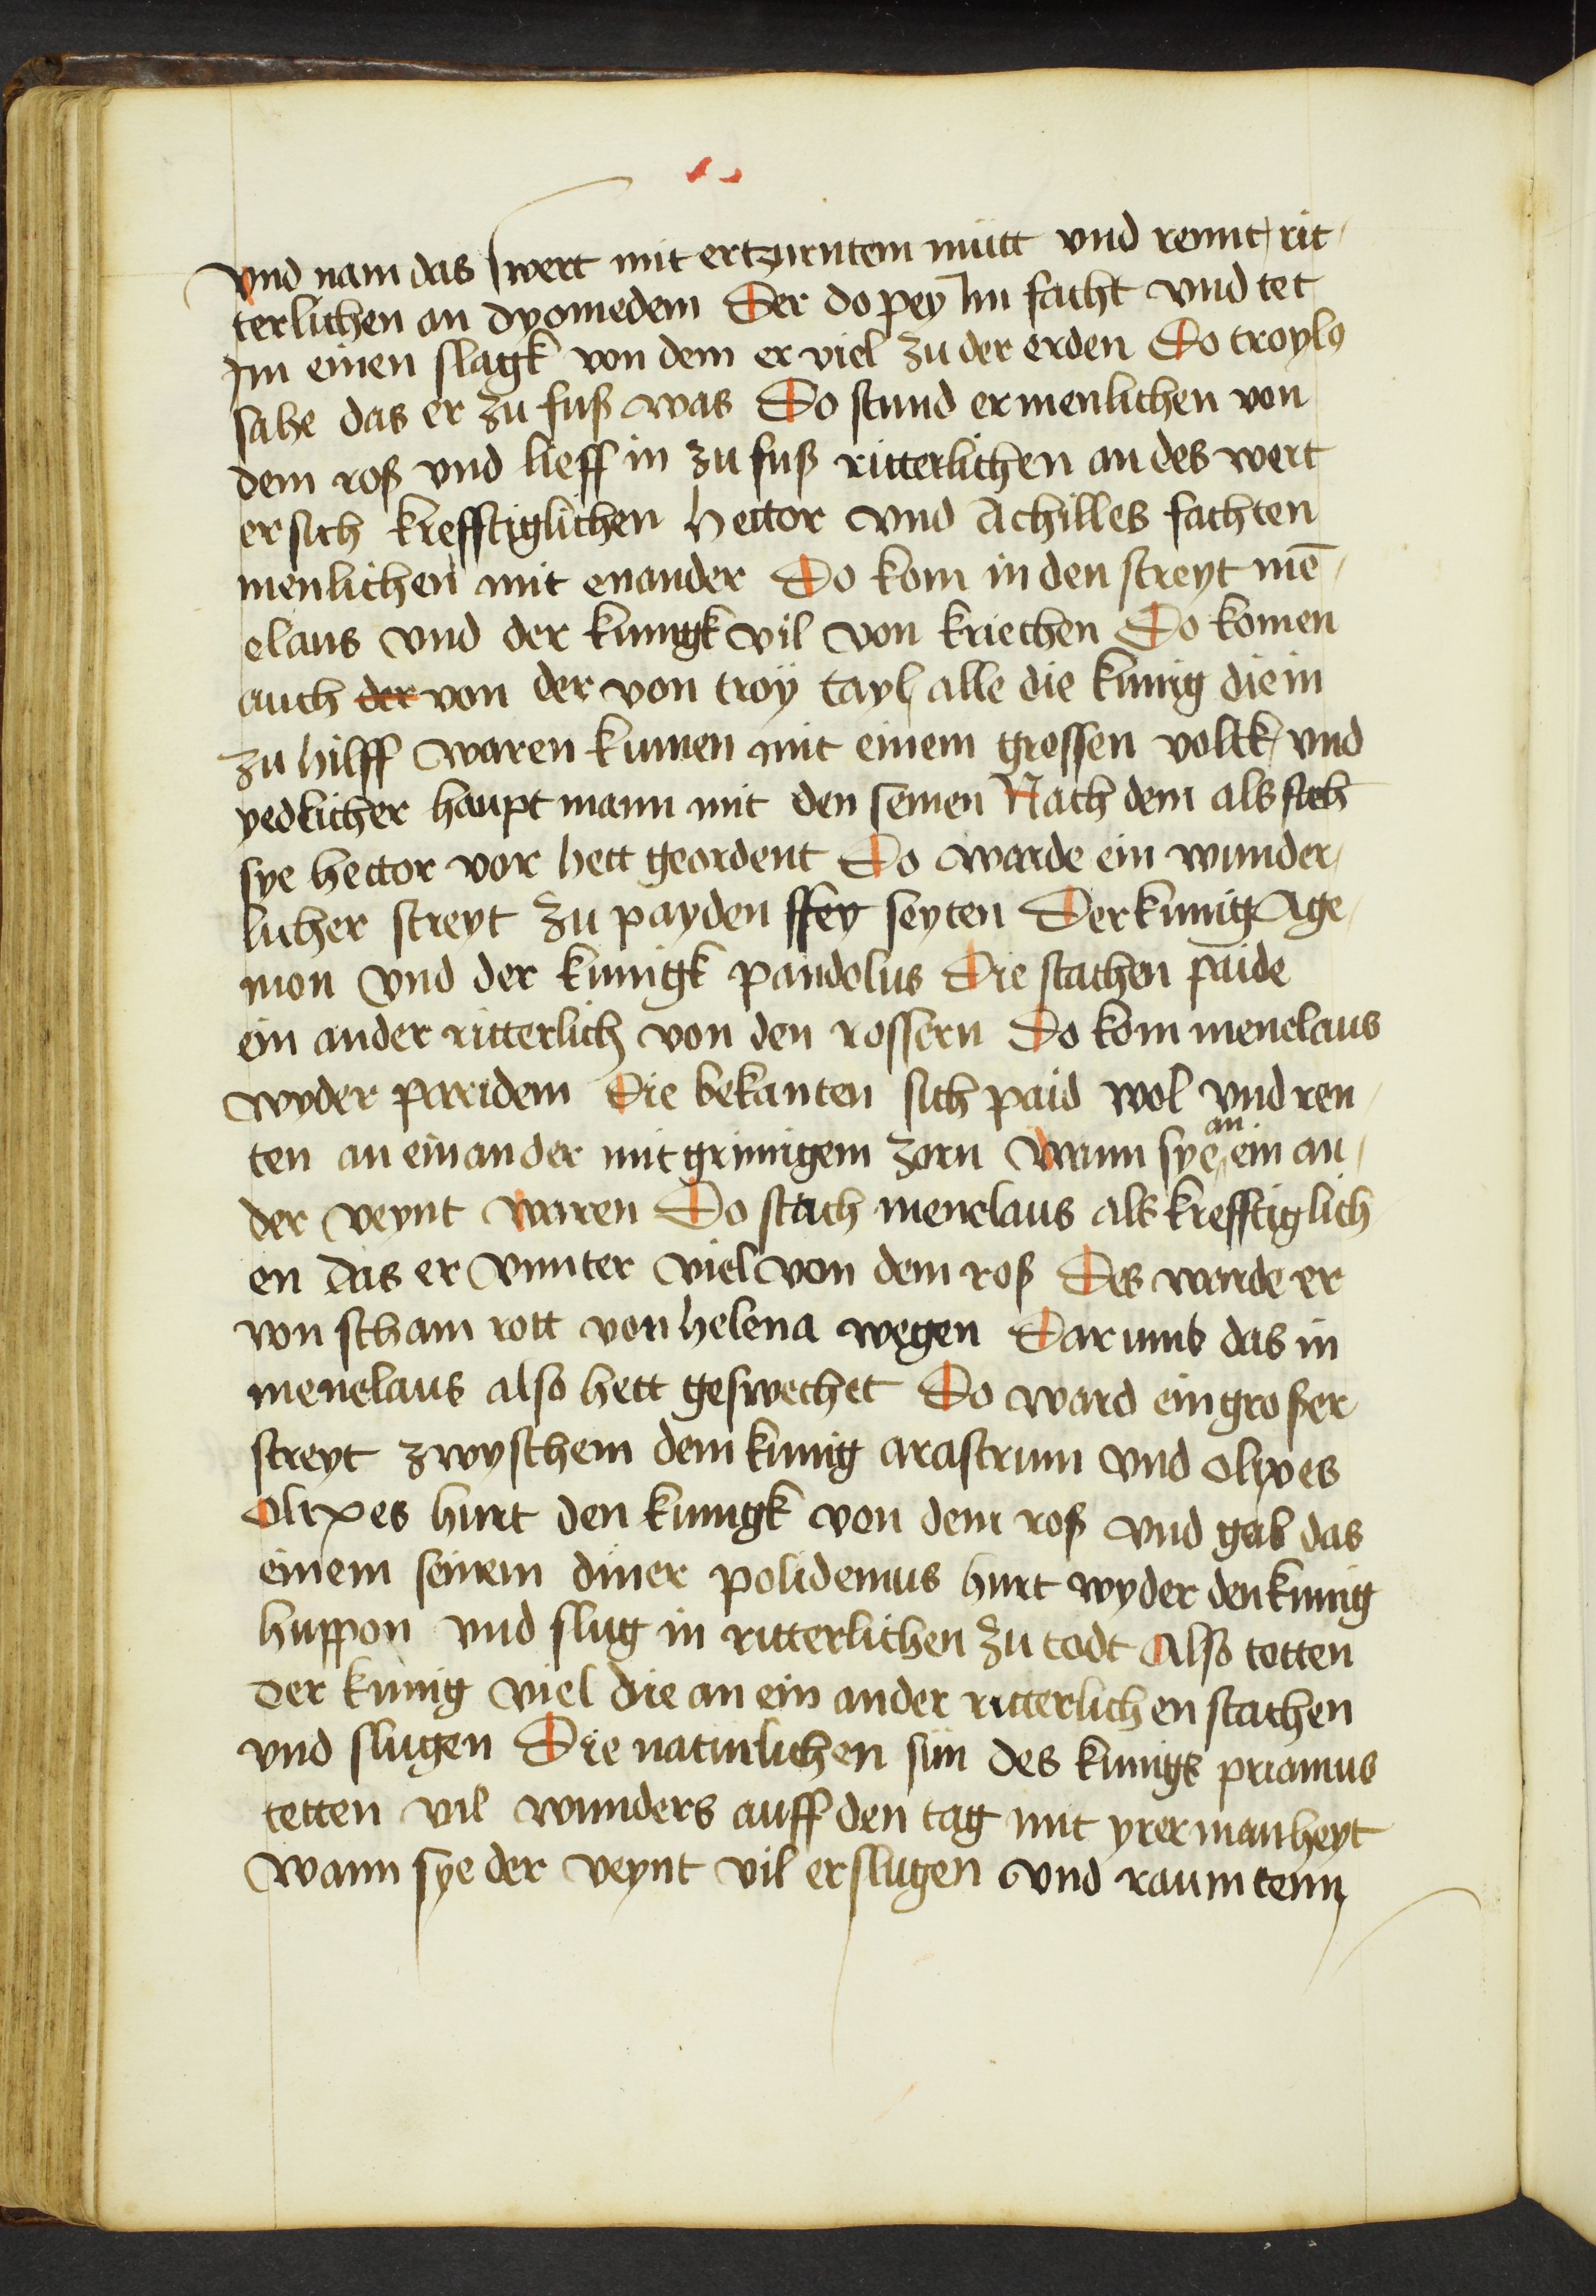 vnd nam das swert mit ertzurntem mütt vnd rennt rit¬
terlichen an dyomedem Der do pey Im facht vnd tet
Im einen slagk von dem er viel zu der erden Do troylꝰ
sahe das er zu fuß was Do stund er menlichen von
dem roß vnd lieff in zu fuß ritterlichen an des wert
er sich krefftiglichen hector vnd Achilles fachten
menlichen mit enander Do kom in den streyt me̅¬
elaus vnd der kunigk vil von kriechen Do komen
auch der von der von troÿ tayl alle die kunig die in
zu hilff waren kumen mit einem grossen volck vnd
yedlicher haupt mann mit den seinen Nach dem als sich
sye hector vor hett geordent Do warde ein wunder¬
licher streyt zu payden ssey seyten Der kunig Age¬
mon vnd der kunigk pandolus Die stachen paide
ein ander ritterlich von den rossern Do kom menelaus
wyder paridem Die bekanten sich paid wol vnd ren¬
ten an einander mit grimigem zorn Wann sye an ein an¬
der veynt waren Do stach menelaus als krefftiglich
en das er vnnter viel von dem roß Des warde er
von scham rott von helena wegen Darumb das in
menelaus also hett geswechet Do ward ein großer
streyt zwyschem dem kunig arastrum vnd olixes
Olixes hurt den kunigk von dem roß vnd gab das
einem seinem diner polidemus hurt wyder den kunig
huppon vnd slug in ritterlichen zu todt Also totten
der kunig viel die an ein ander ritterlichen stachen
vnd slugen Die naturlichen sün des kunigs priamus
tetten vil wunders auff den tag mit yrer manheyt
Wann sye der veynt vil erslugen vnd raumtenn